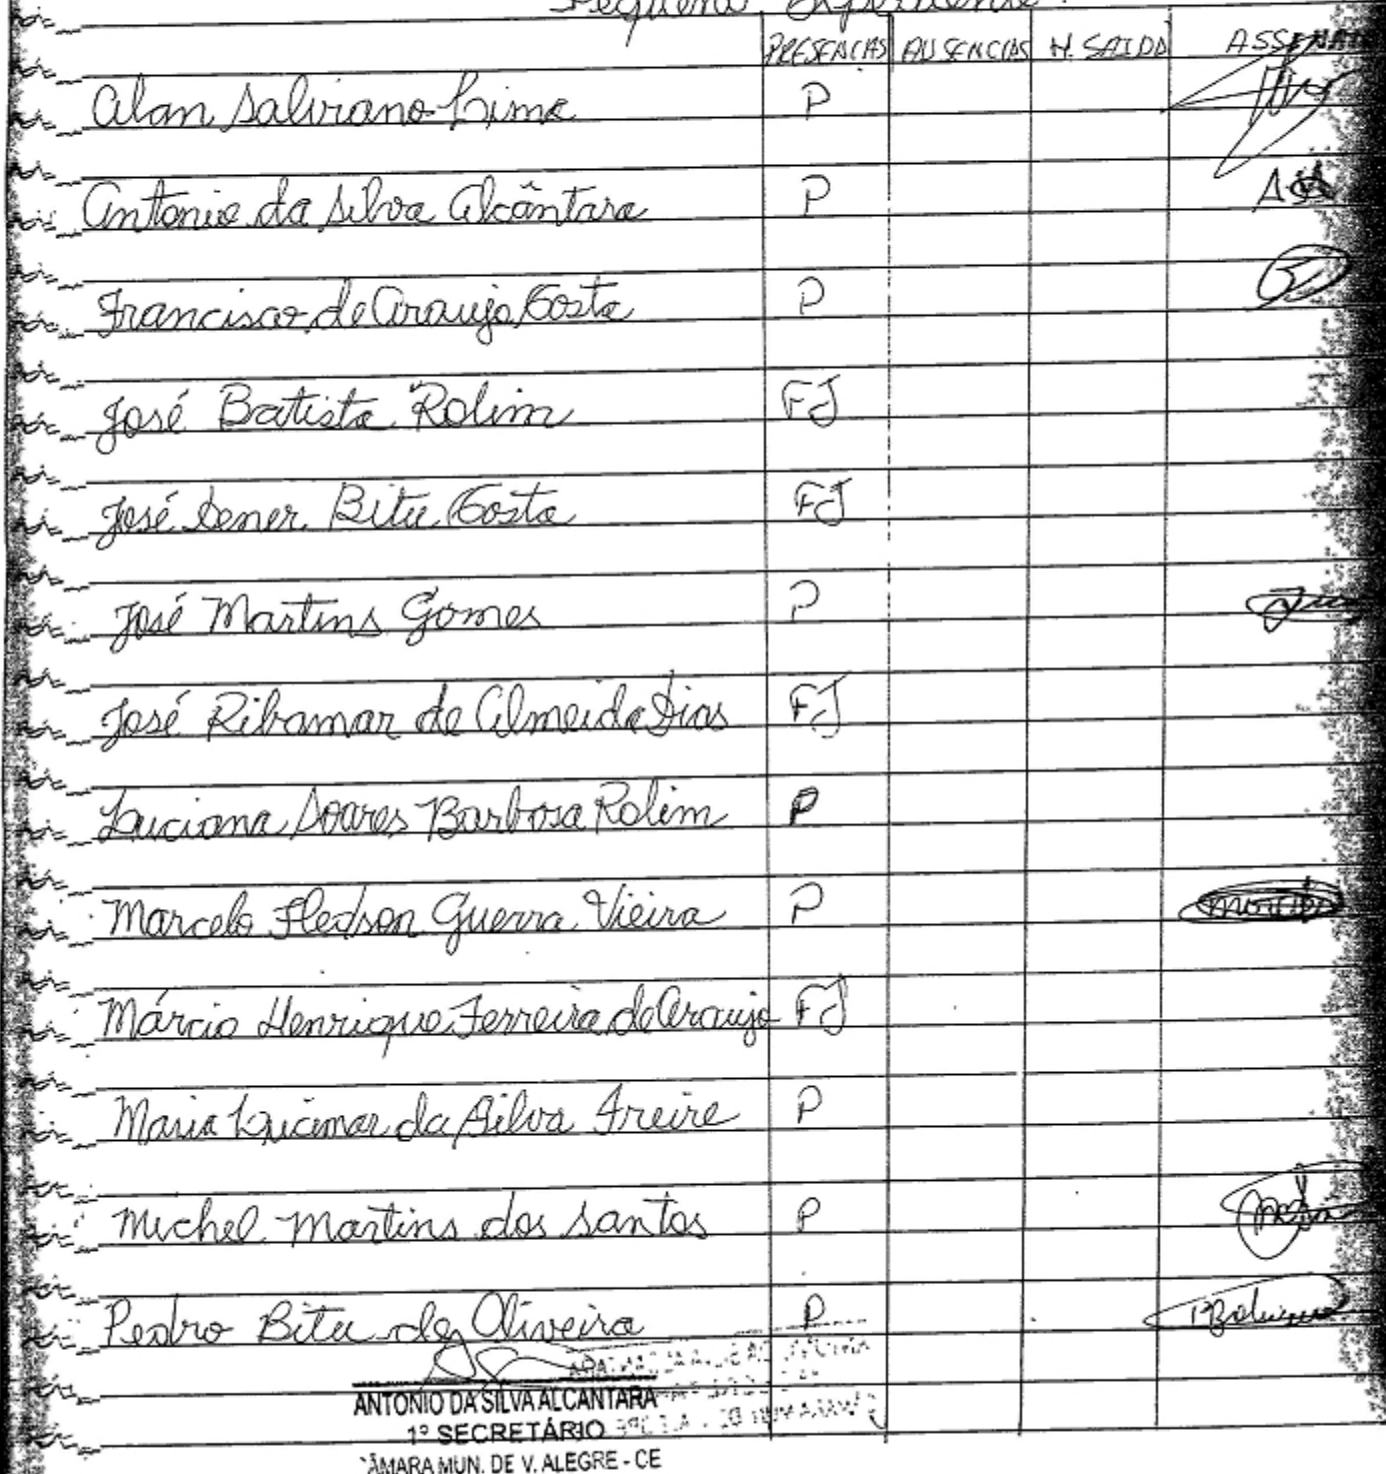 Pequeno Expediente.
PRESENCIAS AUSENCIAS H. SAIDA ASSENAT
Alan Salviano Lima P
Antonio da Silva Alcântara P
Francisco de Araujo Costa P
José Batista Rolim FJ
José Dener Bitu Costa FJ
José Martins Gomes P
José Ribamar de Almeida Dias FJ
Luciana Soares Barbosa Rolim P
Marcelo Fledson Guerra Vieira P
Márcio Henrique Ferreira de Araujo FJ
Maria Lucimar da Silva Freire P
Michel Martins dos Santos P
Pedro Bitu de Oliveira P
ANTONIO DA SILVA ALCANTARA
1º SECRETÁRIO
ÂMARA MUN. DE V. ALEGRE - CE